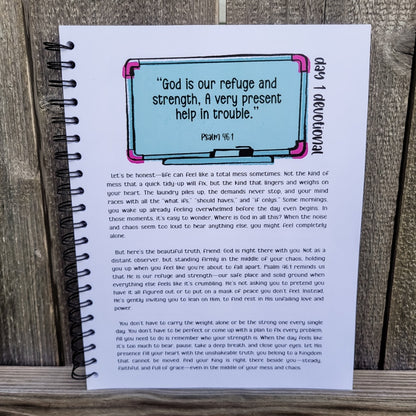 day 1 devotional
“God is our refuge and
strength, A very present
help in trouble.”
Psalm 46:1
Let's be honest—life can feel like a total mess sometimes. Not the kind of
mess that a quick tidy-up will fix, but the kind that lingers and weighs on
your heart. The laundry piles up, the demands never stop, and your mind
races with all the "what ifs," "should haves," and "if onlys." Some mornings,
you wake up already feeling overwhelmed before the day even begins. In
those moments, it's easy to wonder: Where is God in all this? When the noise
and chaos seem too loud to hear anything else, you might feel completely
alone.
But here's the beautiful truth, friend: God is right there with you. Not as a
distant observer, but standing firmly in the middle of your chaos, holding
you up when you feel like you're about to fall apart. Psalm 46:1 reminds us
that He is our refuge and strength—our safe place and solid ground when
everything else feels like it's crumbling. He's not asking you to pretend you
have it all figured out or to put on a mask of peace you don't feel. Instead,
He's gently inviting you to lean on Him, to find rest in His unfailing love and
power.
You don't have to carry the weight alone or be the strong one every single
day. You don't have to be perfect or come up with a plan to fix every problem.
All you need to do is remember who your strength is. When the day feels like
it's too much to bear, pause, take a deep breath, and close your eyes. Let His
presence fill your heart with the unshakable truth: you belong to a Kingdom
that cannot be moved. And your King is right there beside you—steady,
faithful, and full of grace—even in the middle of your mess and chaos.